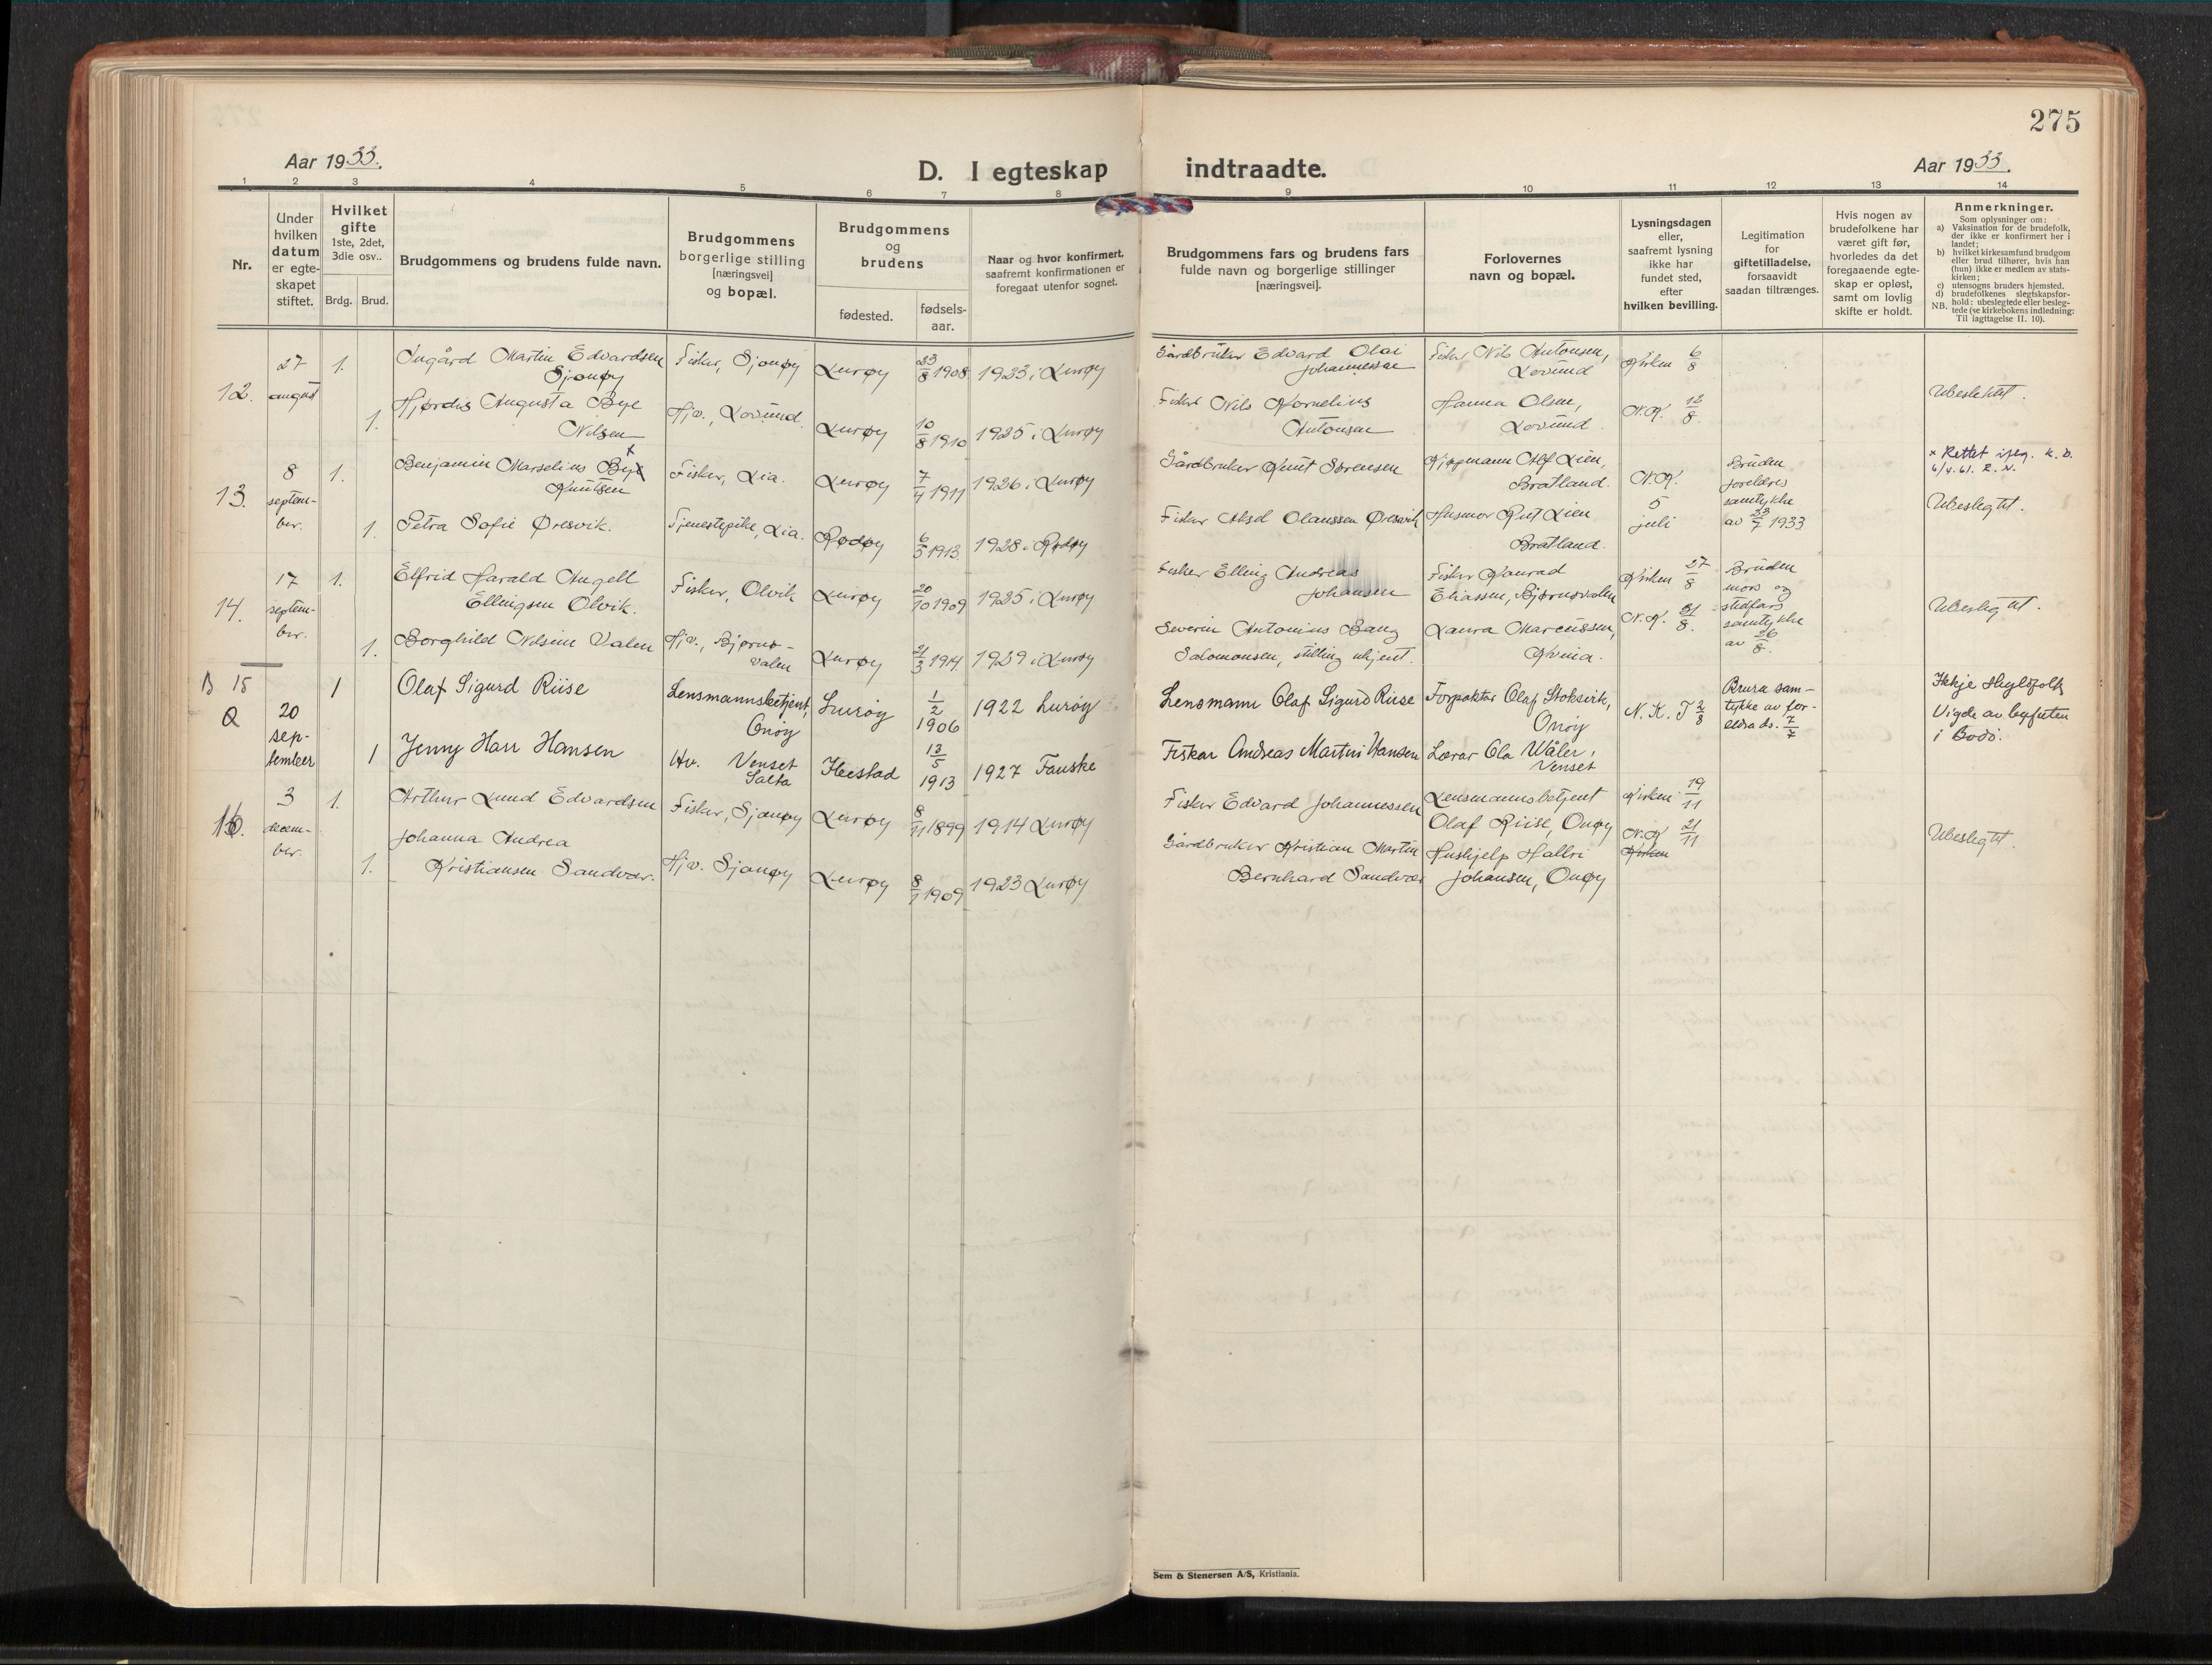 275
Aar 1933.
D. I egteskap indtraadte.
Aar 1933.
1 2 3 4 5 6 7 8 9 10 11 12 13 14
Nr.
Under
hvilken
datum
er egte-
skapet
stiftet.
Hvilket
gifte
1ste, 2det,
3die osv..
Brdg. Brud.
Brudgommens og brudens fulde navn.
Brudgommens
borgerlige stilling
[næringsvei]
og bopæl.
Brudgommens
og
brudens
fødested.
fødsels-
aar.
Naar og hvor konfirmert,
saafremt konfirmationen er
foregaat utenfor sognet.
Brudgommens fars og brudens fars
fulde navn og borgerlige stillinger
[næringsvei].
Forlovernes
navn og bopæl.
Lysningsdagen
eller,
saafremt lysning
ikke har
fundet sted,
efter
hvilken bevilling.
Legitimation
for
giftetilladelse,
forsaavidt
saadan tiltrænges.
Hvis nogen av
brudefolkene har
været gift før,
hvorledes da det
foregaaende egte-
skap er opløst,
samt om lovlig
skifte er holdt.
Anmerkninger.
Som oplysninger om:
a) Vaksination for de brudefolk,
der ikke er konfirmert her i
landet;
b) hvilket kirkesamfund brudgom
eller brud tilhører, hvis han
(hun) ikke er medlem av stats-
kirken;
c) utensogns bruders hjemsted.
d) brudefolkenes slegtskapsfor-
hold: ubeslegtede eller besleg-
NB. tede (se kirkebokens indledning:
Til iagttagelse II. 10).
12.
27
august
1.
Ingård Martin Edvardsen
Sjonøy
Fisker, Sjonøy
Lurøy
23/8 1908
1923 i Lurøy
Gårdbruker Edvard Olai
Johannessen
Fisker Nils Antonsen,
Lovund
Kirken 6/8
1.
Hjørdis Augusta Bye
Nilsen
Hjv., Lovund.
Lurøy
10/8 1910
1925 i Lurøy
Fisker Nils Kornelius
Antonsen
Hanna Olsen,
Lovund.
N.K. 12/8.
Ubeslektet.
13.
8
septem-
ber.
1.
Benjamin Marselius Bye x
Knutsen
Fisker, Lia.
Lurøy
7/4 1911
1926 i Lurøy
Gårdbruker Knut Sørensen
Kjøpmann Alf Lien,
Bratland.
N.K.
5
juli
Bruden
foreldres
samtykke
av 23/7 1933
x Rettet K. D.
6/4.61. R. N.
1.
Petra Sofie Øresvik.
Tjenestepike, Lia.
Rødøy
6/5 1913
1928 i Rødøy
Fisker Aksel Olaussen Øresvik
Husmor Rut Lien
Bratland.
Ubeslegtet.
14.
17
septem-
ber.
1.
Elfrid Harald Angell
Ellingsen Olvik.
Fisker, Olvik
Lurøy
20/10 1909
1925 i Lurøy
Fisker Elling Andreas
Johansen
Fisker Konrad
Eliassen, Bjørnsvalen
Kirken 27/8
N.K. 31/8.
Bruden
mors og
stedfars
samtykke
av 26/8.
1.
Borghild Nilsine Valen
Hjv., Bjørns-
valen
Lurøy
21/3 1914
1929 i Lurøy
Severin Antonius Bang
Salomonsen, stilling ukjent.
Laura Marcussen,
Kvina.
Ubeslegtet.
B 15
Q
20
sep-
tember
1
Olaf Sigurd Riise
Lensmannsbetjent,
Onøy
Lurøy
1/2
1906
1922 Lurøy
Lensmann Olaf Sigurd Riise
Forpaktar Olaf Stoksvik,
Onøy
N. K. T 2/8
Brura sam-
tykke av for-
eldra ds. 7/7
Ikkje Skyldfolk
Vigde av byfuten
i Bodø.
1
Jenny Harr Hansen
Hv. Venset
Salta
13/5
1913
1927 Fauske
Fiskar Andreas Martin Hansen
Lærar Ola Wåler,
Venset
16.
3
decem-
ber.
1.
Arthur Lund Edvardsen
Fisker, Sjonøy
Lurøy
8/11 1899
1914 Lurøy
Fisker Edvard Johannessen
Lensmannsbetjent
Olaf Riise, Onøy
Kirken 19/11
N.K 21/11
Kirken
1.
Johanna Andrea
Kristiansen Sandvær.
Hjv. Sjonøy
Lurøy
8/1 1909
1923 Lurøy
Gårdbruker Kristian Martin
Bernhard Sandvær
Hushjelp Hallri
Johansen, Onøy
Ubeslegtet.
Sem & Stenersen A/S, Kristiania.